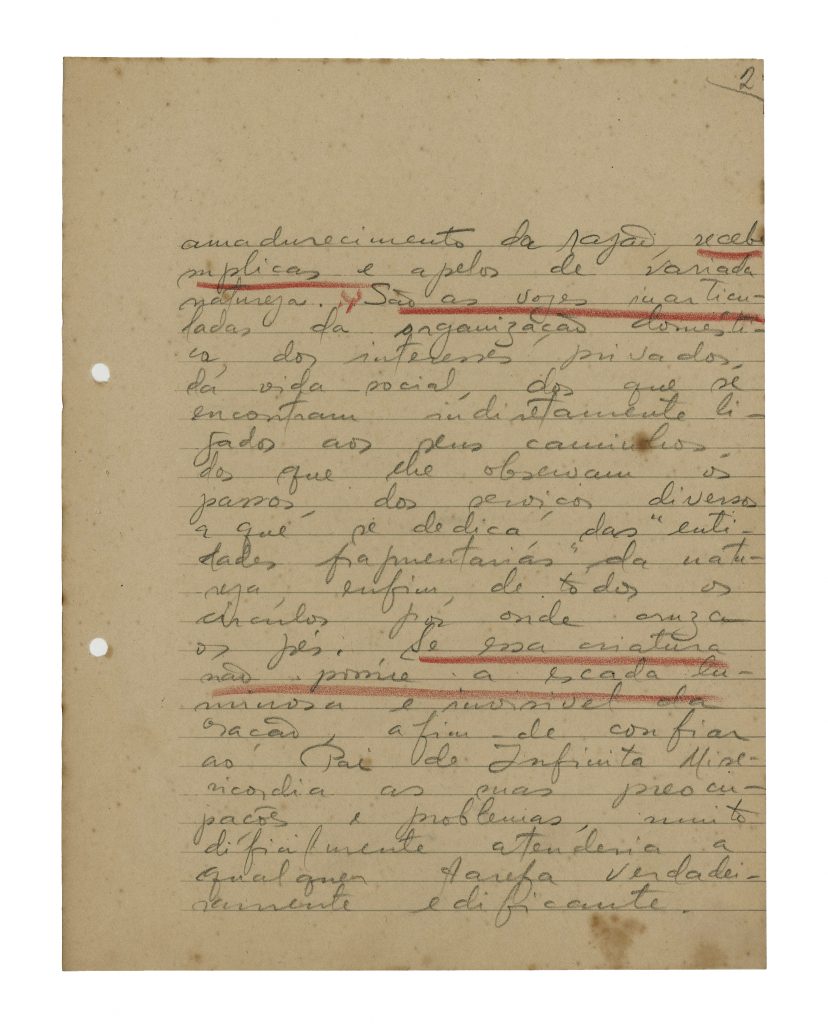 2
amadurecimento da razão, recebe
suplicas e apelos de variada
natureza. São as vozes inarticu-
ladas da organização domésti-
ca, dos interesses privados,
da vida social, dos que se
encontram indiretamente li-
gados aos seus caminhos,
dos que lhe observam os
passos, dos serviços diversos
a que se dedica, das "enti-
dades fragmentarias" da natu-
reza, enfim, de todos os
circulos por onde cruza
os pés. Se essa criatura
não possúe a escada lu-
minosa e invisivel da
oração, afim-de confiar
ao Pai de Infinita Mise-
ricordia as suas preocu-
pações e problemas, muito
dificilmente atenderia a
qualquer tarefa verdadei-
ramente edificante.